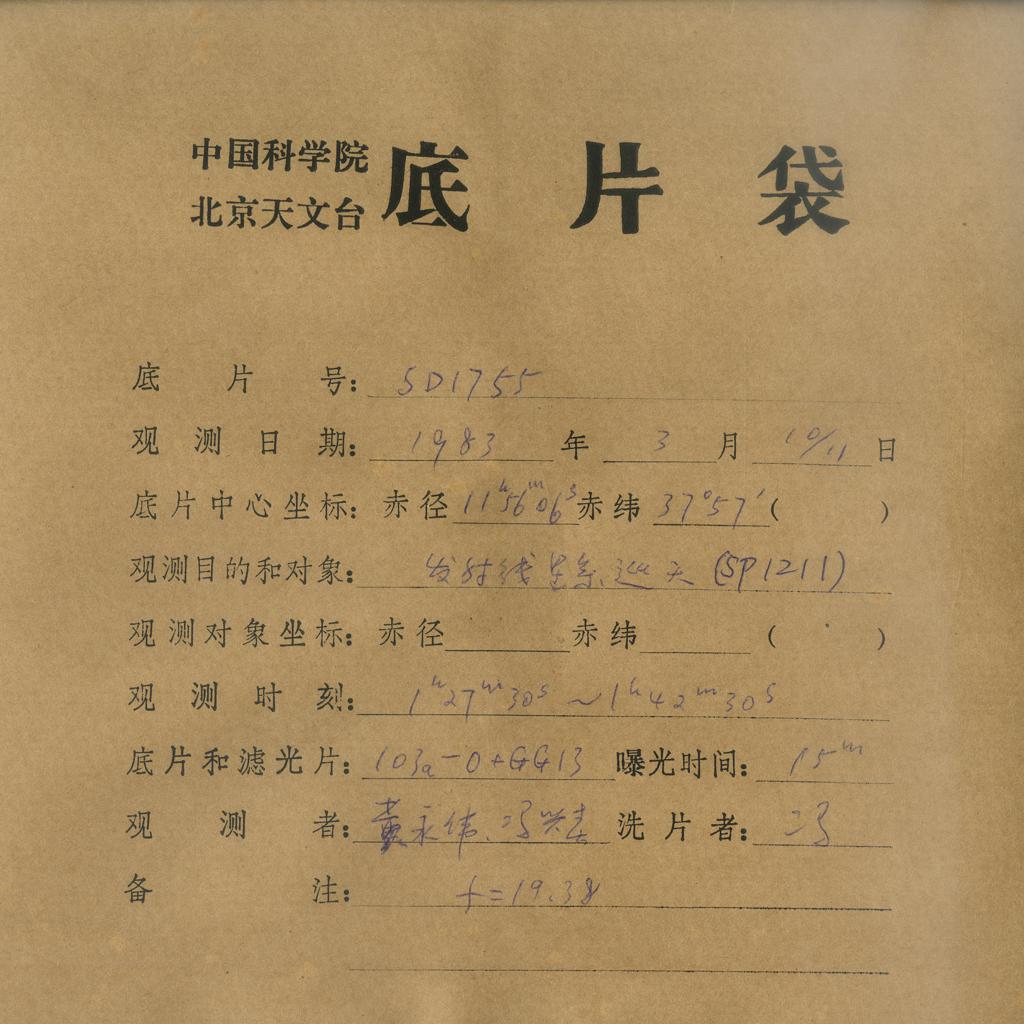 中国科学院
北京天文台
底片袋
底片号: SD1755
观测日期: 1983年3月10/11日
底片中心坐标: 赤径 11h56m06s 赤纬 37°57′( )
观测目的和对象: 发射线星系巡天 (SP1211)
观测对象坐标: 赤径 赤纬 ( )
观测时刻: 1h27m30s ~ 1h42m30s
底片和滤光片: 103a-O+GG13 曝光时间: 15m
观测者: 黄永伟、冯兴春 洗片者: 冯
备注: f=19.38